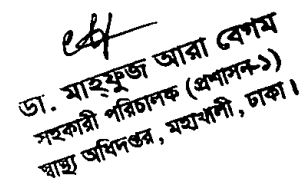 ডা. মাহফুজ আরা বেগম
সহকারী পরিচালক (প্রশাসন-১)
স্বাস্থ্য অধিদপ্তর, মহাখালী, ঢাকা।